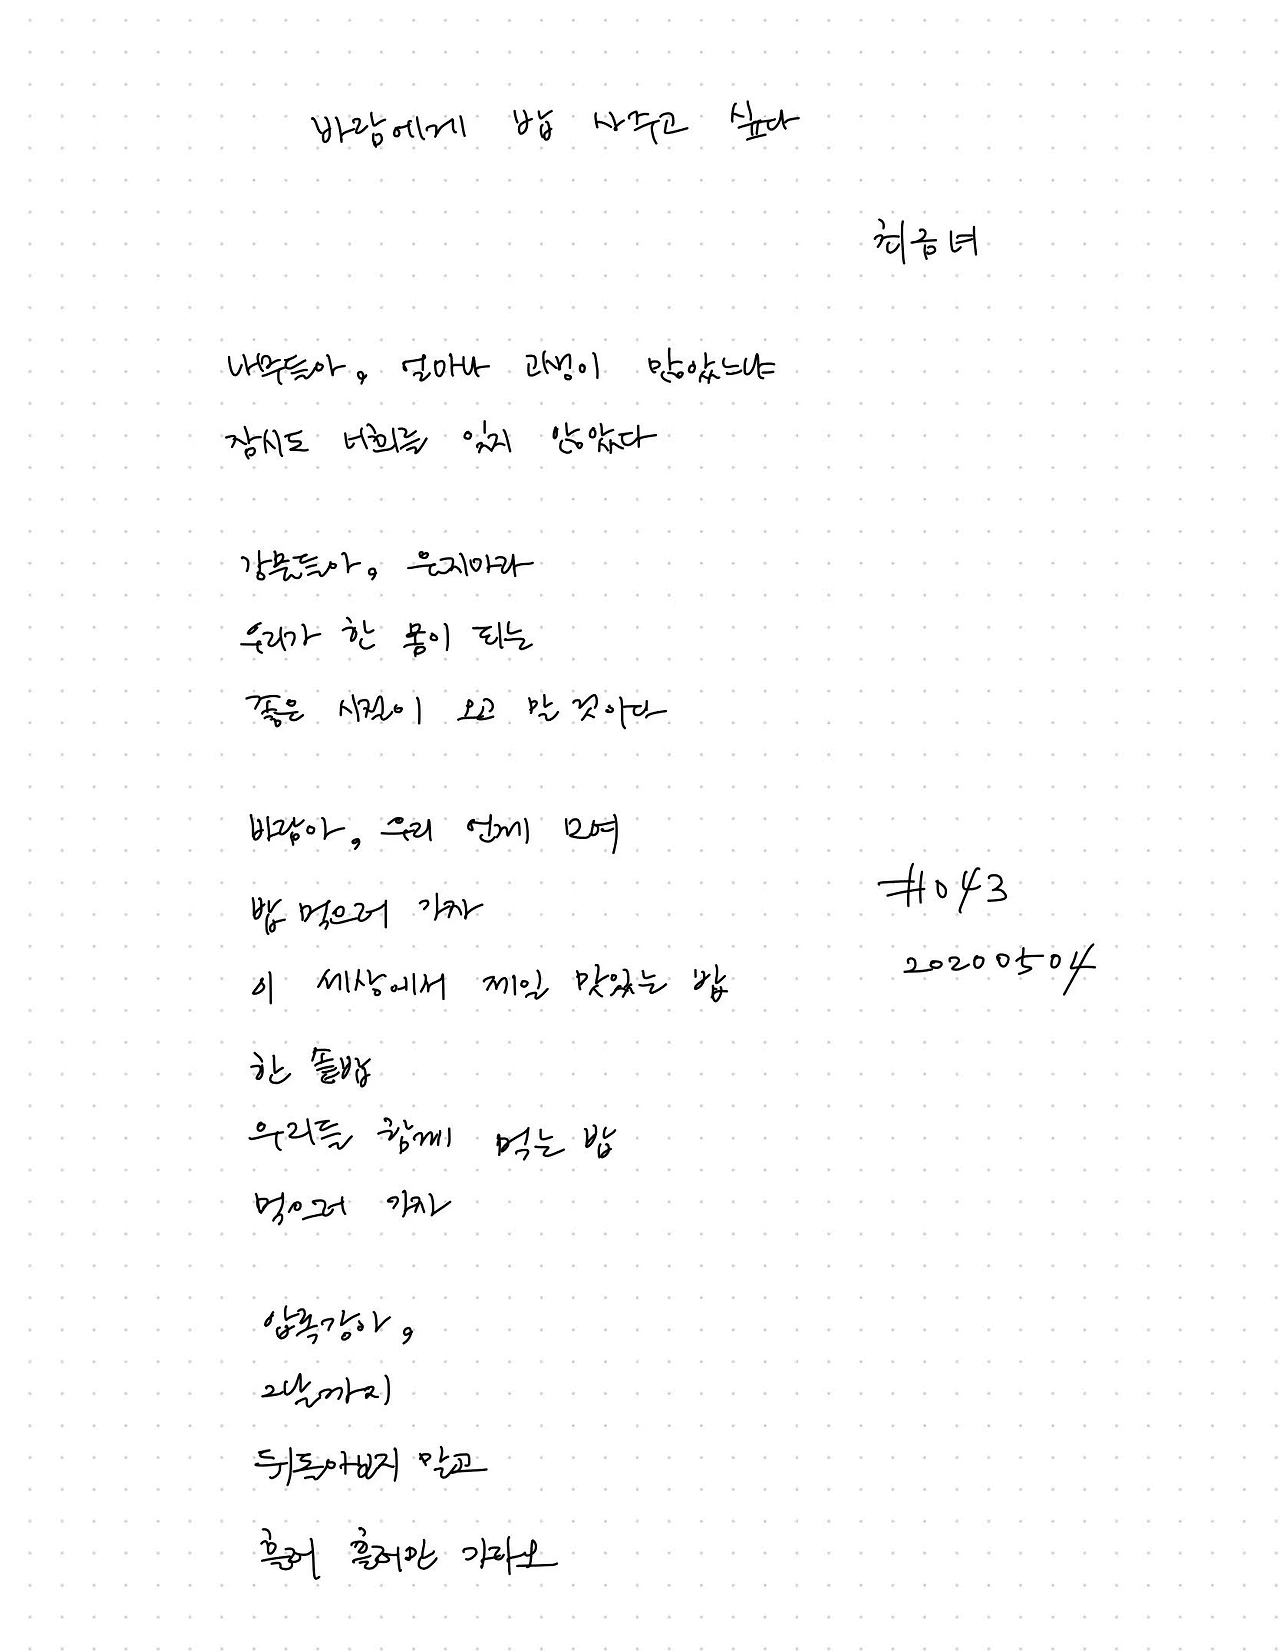 바람에게 밥 사주고 싶다
최금녀
나무들아, 얼마나 고생이 많았느냐
잠시도 너희를 잊지 않았다
강물들아, 울지마라
우리가 한 몸이 되는
좋은 시절이 오고 말 것이다
바람아, 우리 언제 모여
밥 먹으러 가자
이 세상에서 제일 맛있는 밥
한솥밥
우리들 함께 먹는 밥
먹으러 가자
#043
20200504
압록강아,
그날까지
뒤돌아보지 말고
흘러 흘러만 가라오